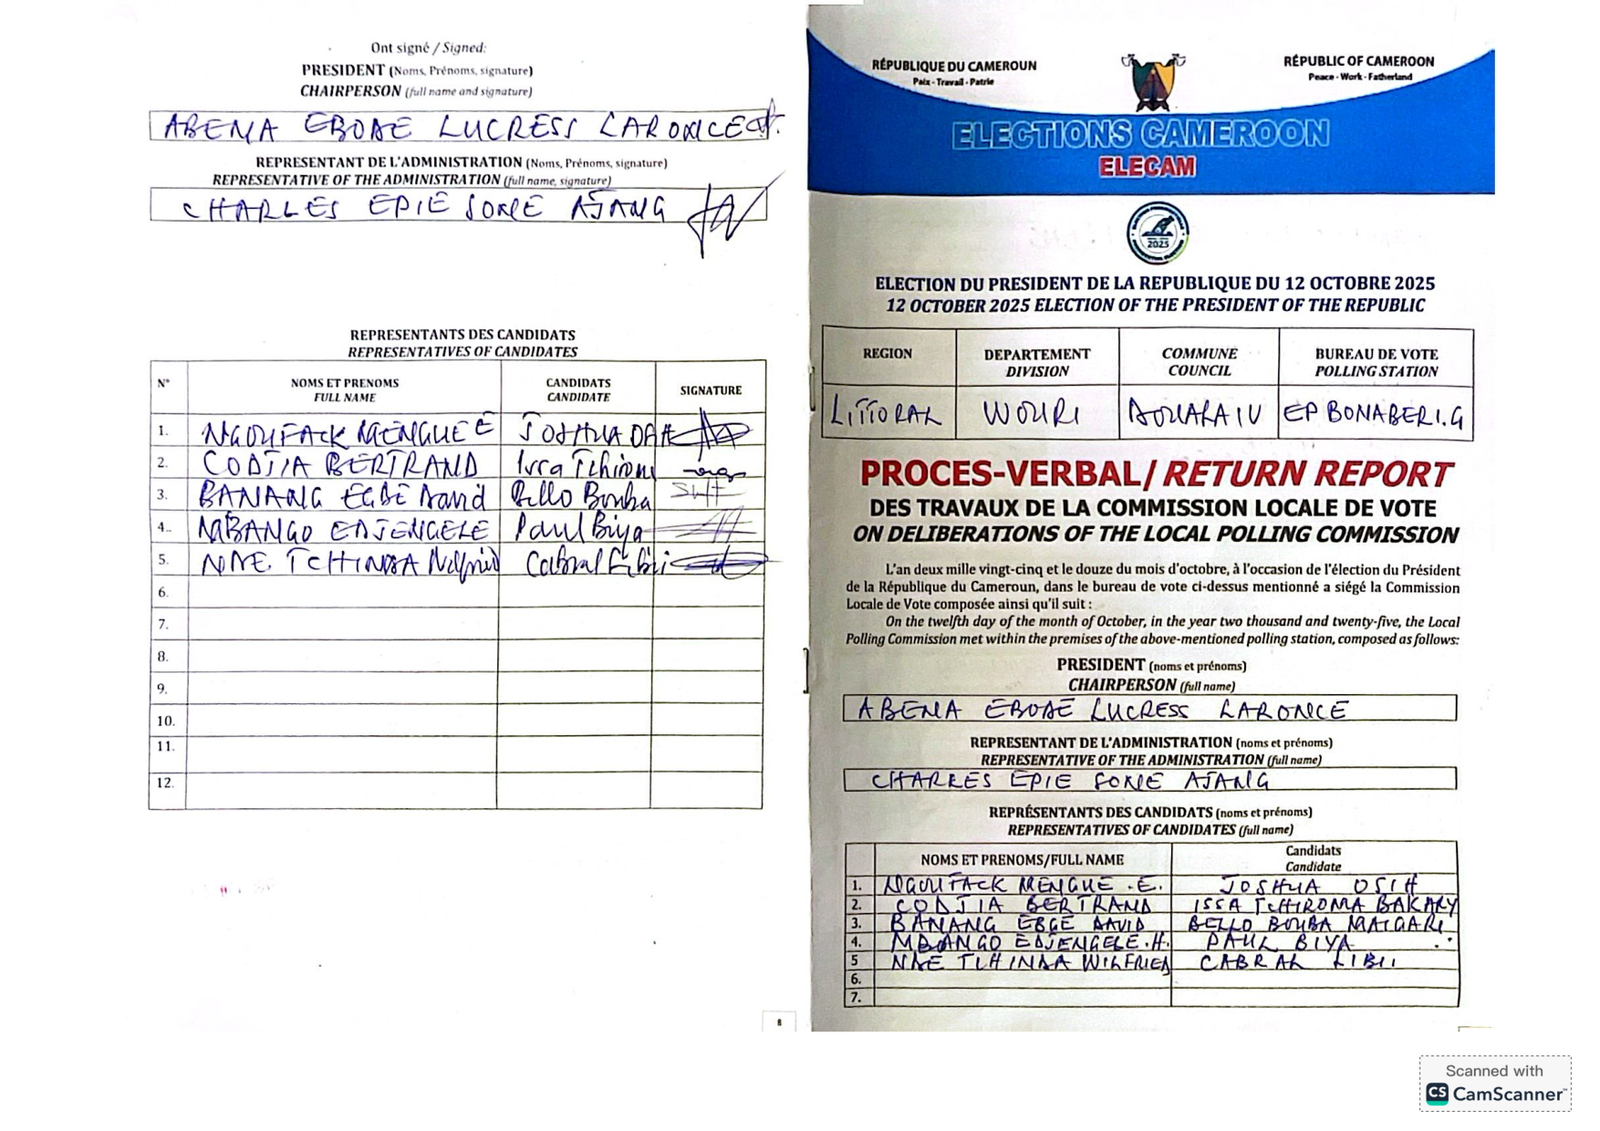 Ont signé / Signed:
PRESIDENT (Noms, Prénoms, signature)
CHAIRPERSON (full name and signature)
ABENA EBODE LUCRESS LARONCE
REPRESENTANT DE L'ADMINISTRATION (Noms, Prénoms, signature)
REPRESENTATIVE OF THE ADMINISTRATION (full name, signature)
CHARLES EPIE SONE AJANG
REPRESENTANTS DES CANDIDATS
REPRESENTATIVES OF CANDIDATES
N° NOMS ET PRENOMS CANDIDATS SIGNATURE
FULL NAME CANDIDATE
1. NGOUFACK MENGUE E JOSHUA
2. CODJIA BERTRAND Issa Tchirom
3. BANANG EGBE David Bello Bouba
4. MBANGO EDJENGELE Paul Biya
5. NDE TCHINDA Cabral Libii
6.
7.
8.
9.
10.
11.
12.
8
RÉPUBLIQUE DU CAMEROUN
Paix - Travail - Patrie
RÉPUBLIC OF CAMEROON
Peace - Work - Fatherland
ELECTIONS CAMEROON
ELECAM
2025
ELECTION DU PRESIDENT DE LA REPUBLIQUE DU 12 OCTOBRE 2025
12 OCTOBER 2025 ELECTION OF THE PRESIDENT OF THE REPUBLIC
REGION DEPARTEMENT COMMUNE BUREAU DE VOTE
DIVISION COUNCIL POLLING STATION
LITTORAL WOURI DOUALA IV EP BONABERI.G
PROCES-VERBAL / RETURN REPORT
DES TRAVAUX DE LA COMMISSION LOCALE DE VOTE
ON DELIBERATIONS OF THE LOCAL POLLING COMMISSION
L'an deux mille vingt-cinq et le douze du mois d'octobre, à l'occasion de l'élection du Président
de la République du Cameroun, dans le bureau de vote ci-dessus mentionné a siégé la Commission
Locale de Vote composée ainsi qu'il suit :
On the twelfth day of the month of October, in the year two thousand and twenty-five, the Local
Polling Commission met within the premises of the above-mentioned polling station, composed as follows:
PRESIDENT (noms et prénoms)
CHAIRPERSON (full name)
ABENA EBODE LUCRESS LARONCE
REPRESENTANT DE L'ADMINISTRATION (noms et prénoms)
REPRESENTATIVE OF THE ADMINISTRATION (full name)
CHARLES EPIE SONE AJANG
REPRÉSENTANTS DES CANDIDATS (noms et prénoms)
REPRESENTATIVES OF CANDIDATES (full name)
NOMS ET PRENOMS/FULL NAME Candidats
Candidate
1. NGOUFACK MENGUE .E. JOSHUA OSIH
2. CODJIA BERTRAND ISSA TCHIROMA BAKARY
3. BANANG EBGE DAVID BELLO BOUBA MAIGARI
4. MBANGO EDJENGELE.H. PAUL BIYA
5 NDE TCHINDA WILFRIED CABRAL LIBII
6.
7.
Scanned with
CS CamScanner